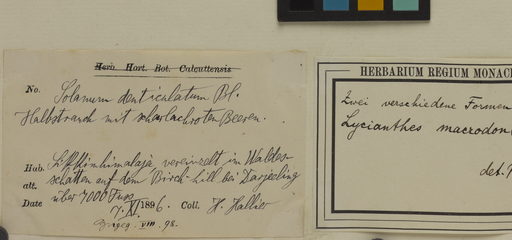 Herb. Hort. Bot. Calcuttensis
No. Solanum denticulatum Bl.
Halbstrauch mit scharlachroten Beeren.
Hab. Sikkimhimalaja vereinzelt im Waldes-
schatten auf dem Birch-hill bei Darjeeling
alt. über 7000 Fuss
Date 7. XI. 1896. Coll. H. Hallier
VIII. 98.
HERBARIUM REGIUM MONAC
Zwei verschiedene Formen
Lycianthes macrodon
det.